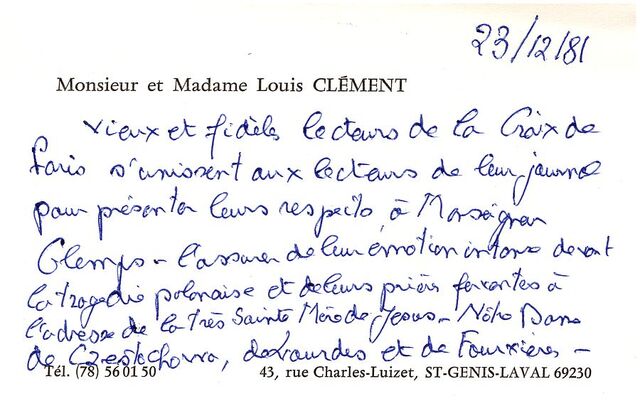 23/12/81
Monsieur et Madame Louis CLÉMENT
Vieux et fidèles lecteurs de la Croix de
Paris s'unissent aux lecteurs de leur journal
pour présenter leurs respects, à Monseigneur
Glemp - l'assurer de leur émotion intense devant
la tragédie polonaise et de leurs prières ferventes à
l'adresse de la très Sainte Mère de Jésus - Notre Dame
de Czestochowa, de Lourdes et de Fourvière -
Tél. (78) 56 01 50 43, rue Charles-Luizet, ST-GENIS-LAVAL 69230